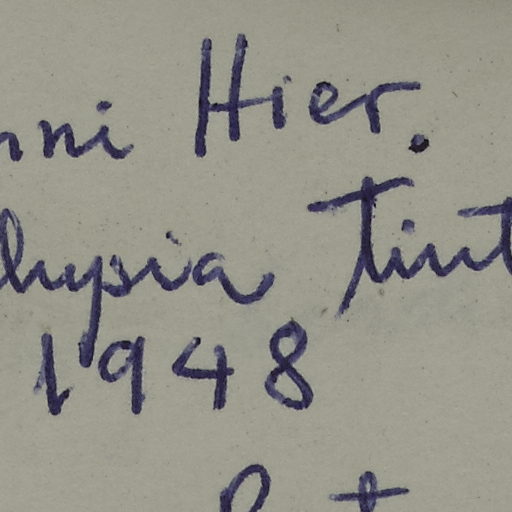 nni Hier.
lypsia Tint
1948